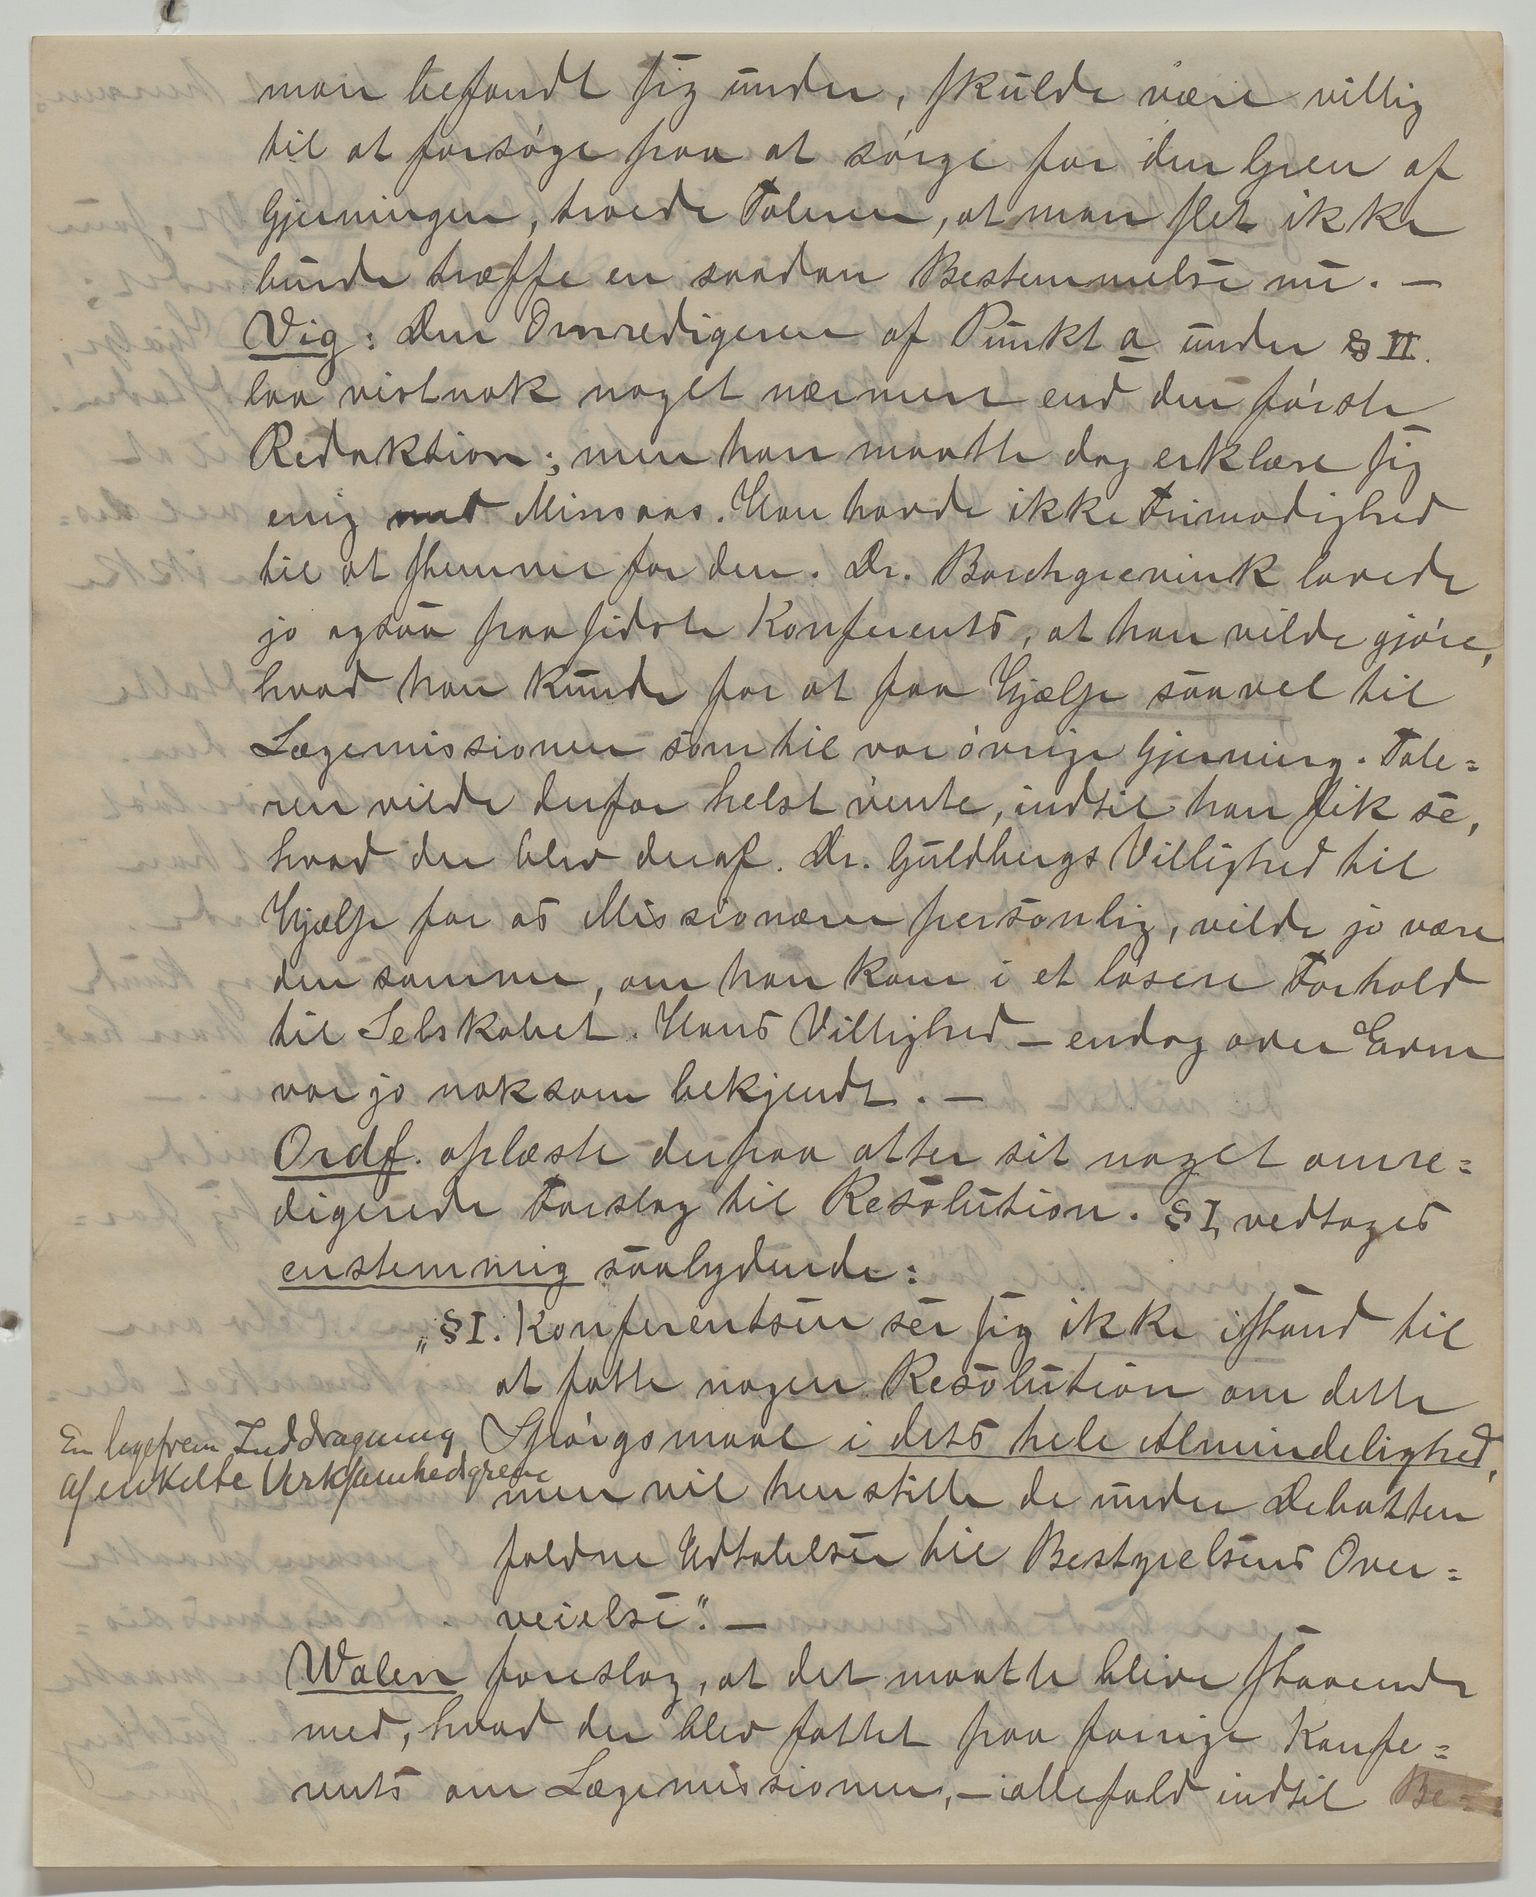 man befandt sig under, skulde være villig
til at forsøge paa at sørge for den Gren af
Gjerningen, troede Taleren, at man slet ikke
burde træffe en saadan Bestemmelse nu. —
Vig: Den Omredigeren af Punkt a under § II.
laa vistnok noget nærmere end den første
Redaktion; men han maatte dog erklære sig
enig med Minsaas. Han havde ikke Frimodighed
til at stemme for den. Dr. Borchgrevink lovede
jo ogsaa paa sidste Konferents, at han vilde gjøre,
hvad han kunde for at faa Hjælp saavel til
Lægemissionen som til vor øvrige Gjerning. Tale=
ren vilde derfor helst vente, indtil han fik se,
hvad der blev deraf. Dr. Guldbergs Villighed til
Hjælp for os Missionærer personlig, vilde jo være
den samme, om han kom i et løsere Forhold
til Selskabet. Hans Villighed — endog over Evne
var jo noksom bekjendt. —
Ordf. oplæste derpaa atter sit noget omre=
digerede Forslag til Resolution. § I, vedtoges
enstemmig saalydende:
„§ I. Konferentsen ser sig ikke istand til
at fatte nogen Resolution om dette
Spørgsmaal i dets hele Almindelighed,
En ligefrem Inddragning
af enkelte Virksomhedsgrene
men vil henstille de under Debatten
faldne Udtalelser til Bestyrelsens Over=
veielse". —
Walen foreslog, at det maatte blive staaende
med, hvad der blev fattet paa forrige Konfe=
rents om Lægemissionen, — iallefald indtil Be=